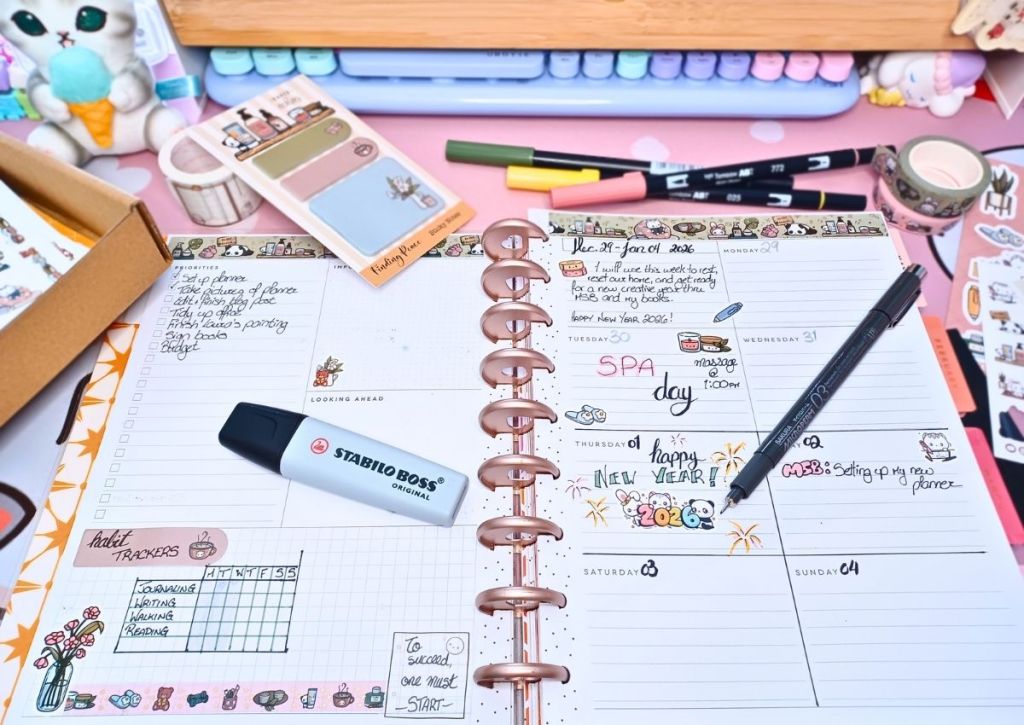 Finding Peace
PRIORITIES
Set up planner
Take pictures of planner
Edit + finish blog post
Tidy up office
Finish Laura's painting
Sign books
Budget
LOOKING AHEAD
STABILO BOSS
ORIGINAL
habit
TRACKERS
M T W T F S S
JOURNALING
WRITING
WALKING
READING
To
succeed,
one must
-START-
Dec. 29 - Jan 04 2026
I will use this week to rest,
reset our home, and get ready
for a new creative year thru
MSB and my books.
HAPPY NEW YEAR 2026!
MONDAY 29
TUESDAY 30
SPA
day
massage
@
1:00PM
WEDNESDAY 31
THURSDAY 01
happy
NEW YEAR!
2026
02
MSB: Setting up my new
planner
SATURDAY 03
SUNDAY 04
Tombow ABT
772
Tombow ABT
025
SAKURA
05
FEBRUARY